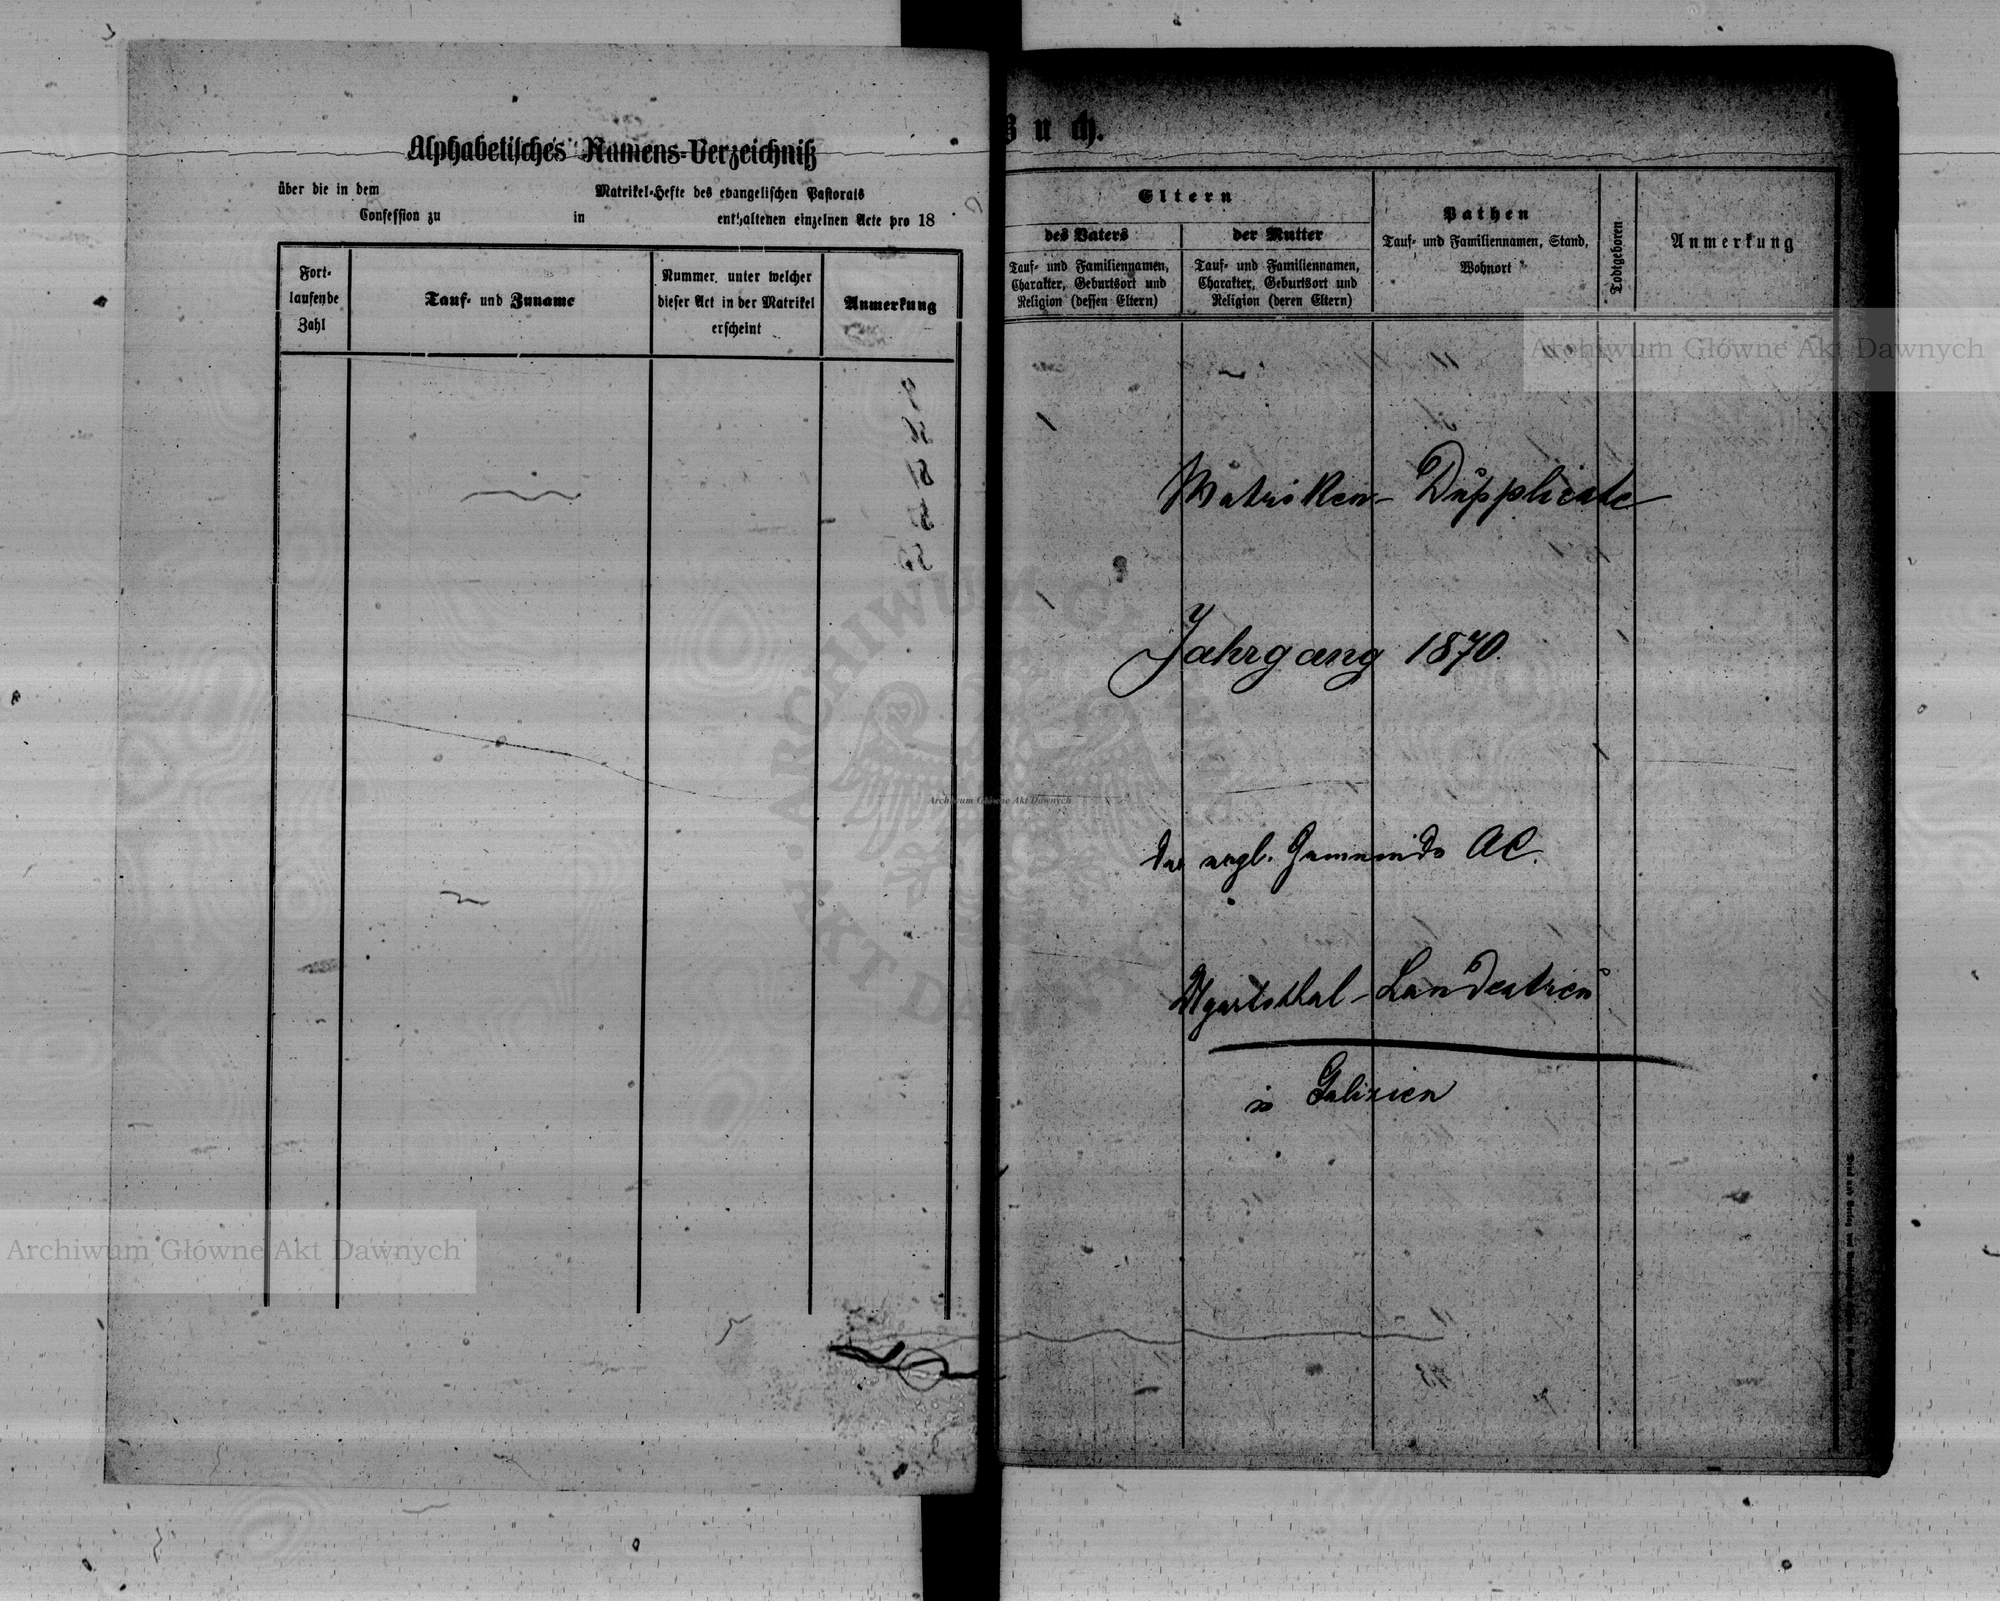 Alphabetisches Namens-Verzeichniß
über die in dem Matrikel-Hefte des evangelischen Pastorats
Confession zu in enthaltenen einzelnen Acte pro 18
Fort-
laufende
Zahl
Tauf- und Zuname
Nummer, unter welcher
dieser Act in der Matrikel
erscheint
Anmerkung
uch.
Eltern
des Vaters
Tauf- und Familiennamen,
Charakter, Geburtsort und
Religion (dessen Eltern)
der Mutter
Tauf- und Familiennamen,
Charakter, Geburtsort und
Religion (deren Eltern)
Pathen
Tauf- und Familiennamen, Stand,
Wohnort
Todtgeboren
Anmerkung
Matriken- Dupplicate
Jahrgang 1870.
der evgl. Gemeinde AC.
Ugartsthal-Landestreu
in Galizien
Archiwum Główne Akt Dawnych
Archiwum Główne Akt Dawnych
Archiwum Główne Akt Dawnych